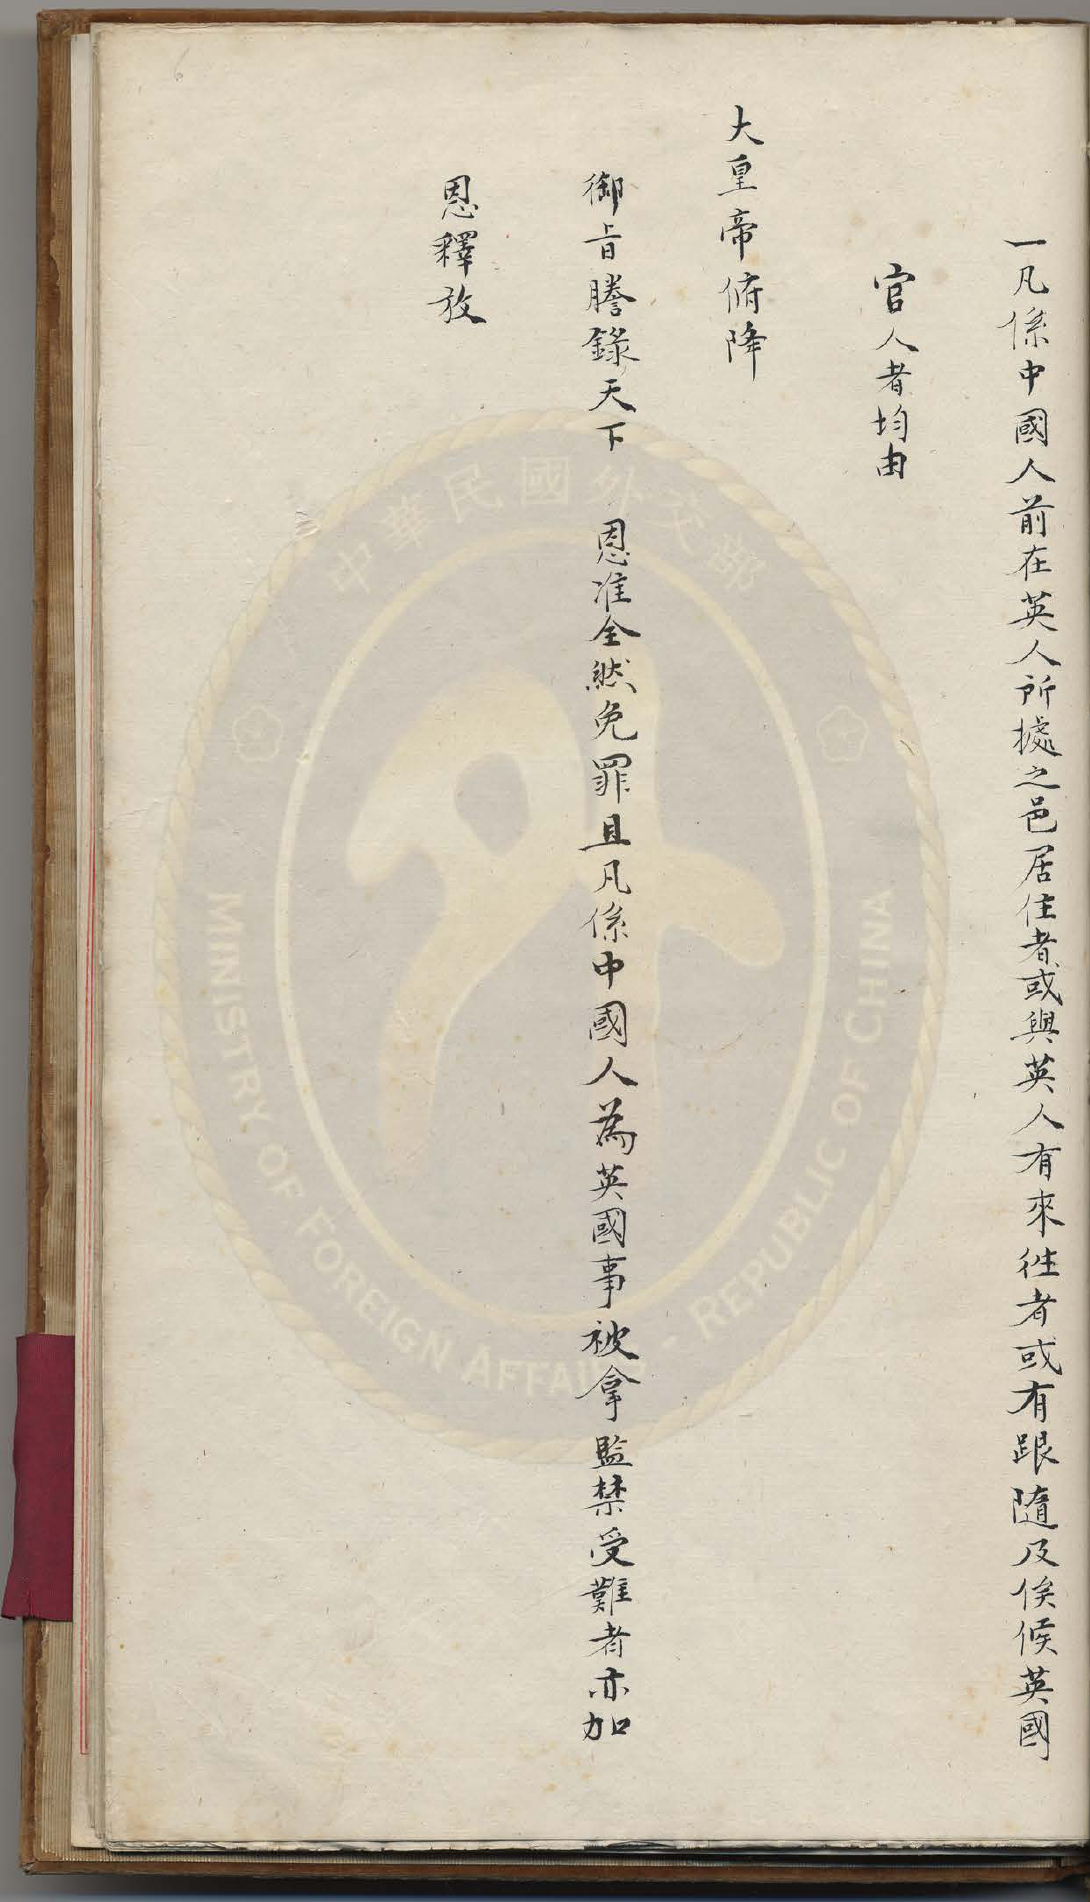 一凡係中國人前在英人所據之邑居住者或與英人有來徃者或有跟隨及俟候英國
官人者均由
大皇帝俯降
御旨謄錄天下恩准全然免罪且凡係中國人為英國事被拿監禁受難者亦加
恩釋放
中華民國外交部
MINISTRY OF FOREIGN AFFAIRS - REPUBLIC OF CHINA